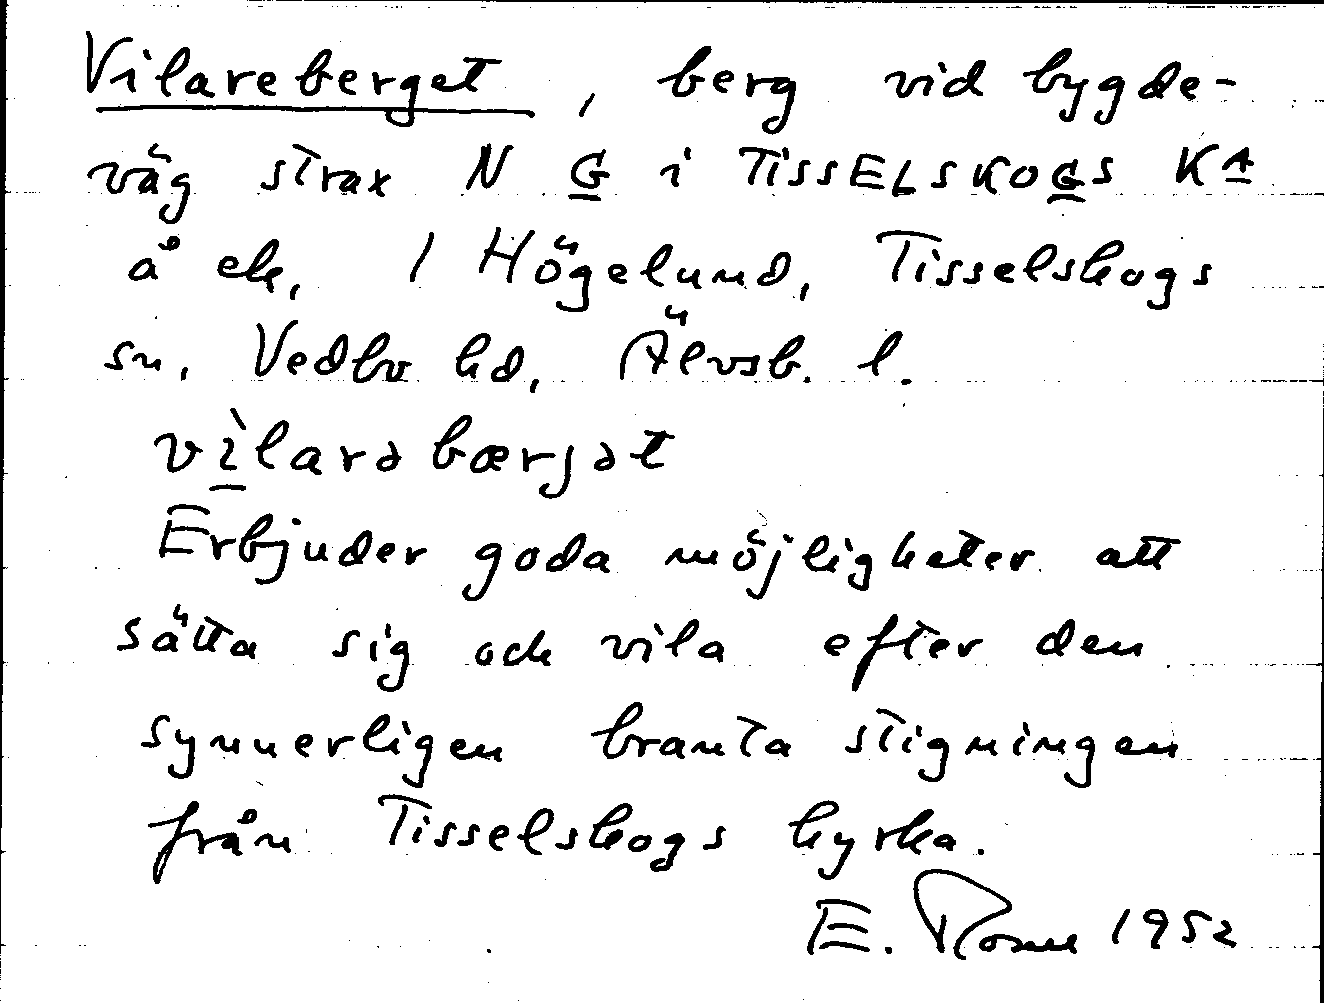 Vilareberget, berg vid bygde-
väg strax N G i TISSELSKOGS KA
å ek, 1 Högelund, Tisselskogs
sn, Vedbo hd, Älvsb. l.
vìlarəbærjət
Erbjuder goda möjligheter att
sätta sig och vila efter den
synnerligen branta stigningen
från Tisselskogs kyrka.
E. 1952